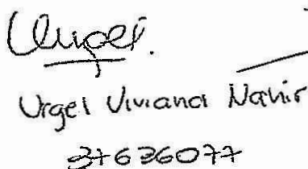 Urgel.
Urgel Viviana Nahir
37636077